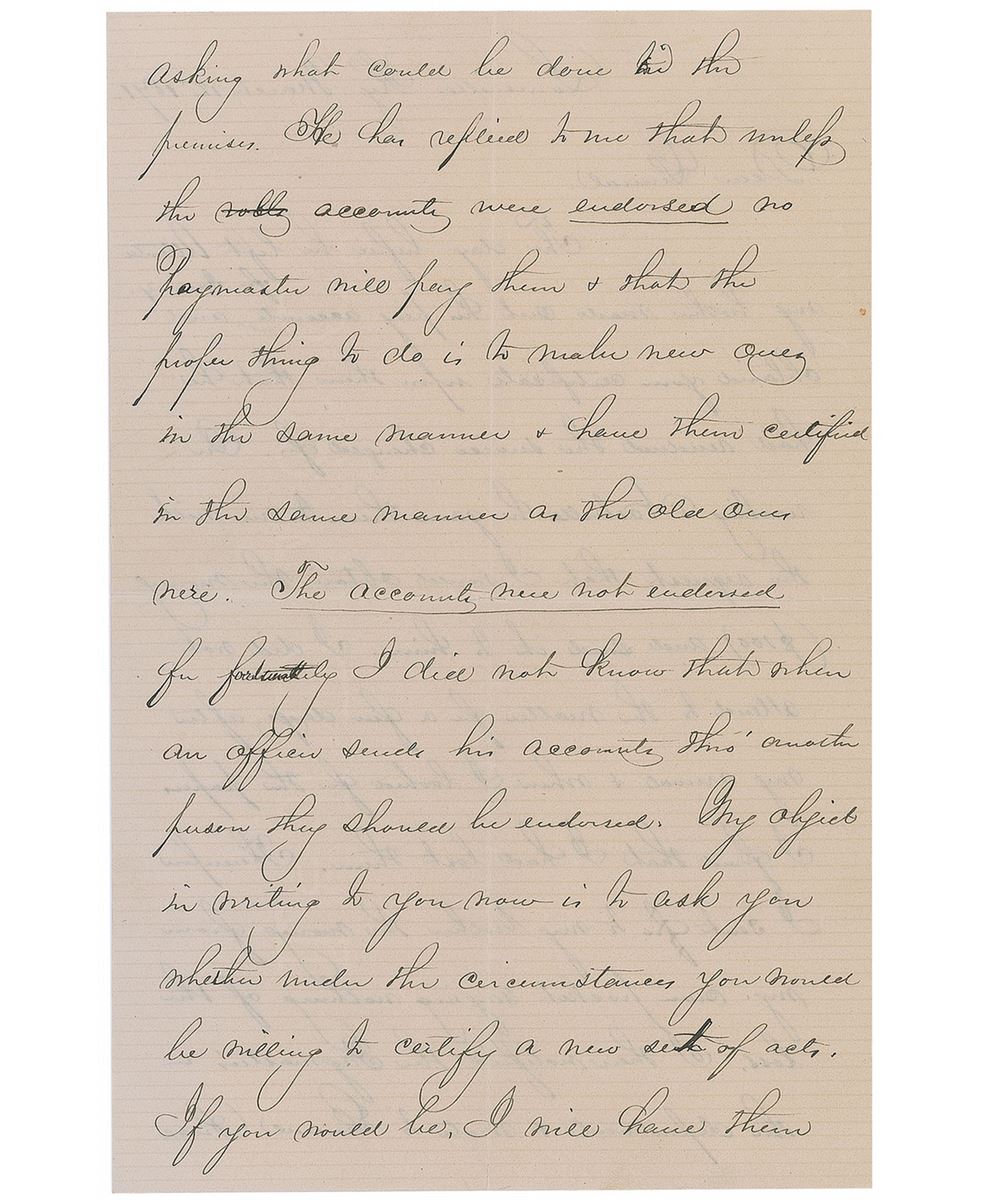 asking what could be done in the
premises. He has replied to me that unless
the rolls accounts were endorsed no
Paymaster will pay them & that the
proper thing to do is to make new ones
in the same manner & have them certified
in the same manner as the old ones
were. The accounts were not endorsed
for fortunately I did not know that when
an officer sends his accounts thro' another
person they should be endorsed. My object
in writing to you now is to ask you
whether under the circumstances you would
be willing to certify a new set of accts.
If you would be, I will have them